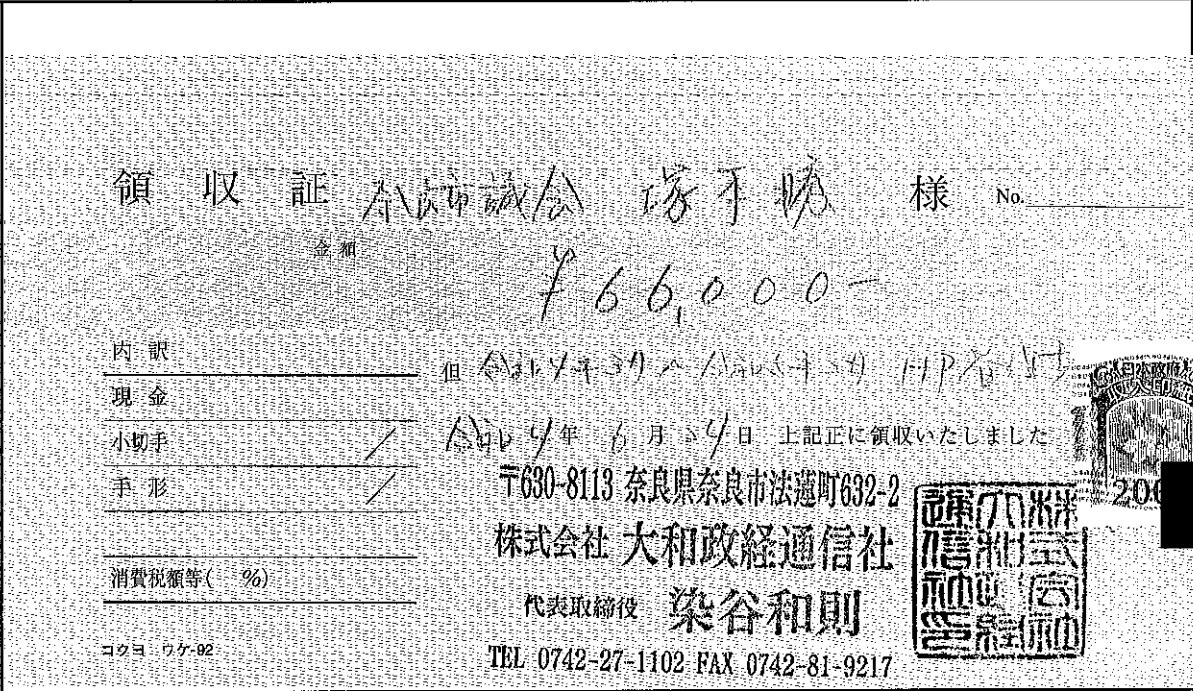 領 収 証 奈良市議会 塚本勝 様 No.
金額
¥66,000-
内訳
現金
小切手
手形
消費税額等( %)
コクヨ ウケ-92
但 令和4年3月〜令和5年2月 HP
令和4年 6月24日 上記正に領収いたしました
〒630-8113 奈良県奈良市法蓮町632-2
株式会社 大和政経通信社
代表取締役 染谷和則
TEL 0742-27-1102 FAX 0742-81-9217
日本政府
200
株式会社大和政経通信社印